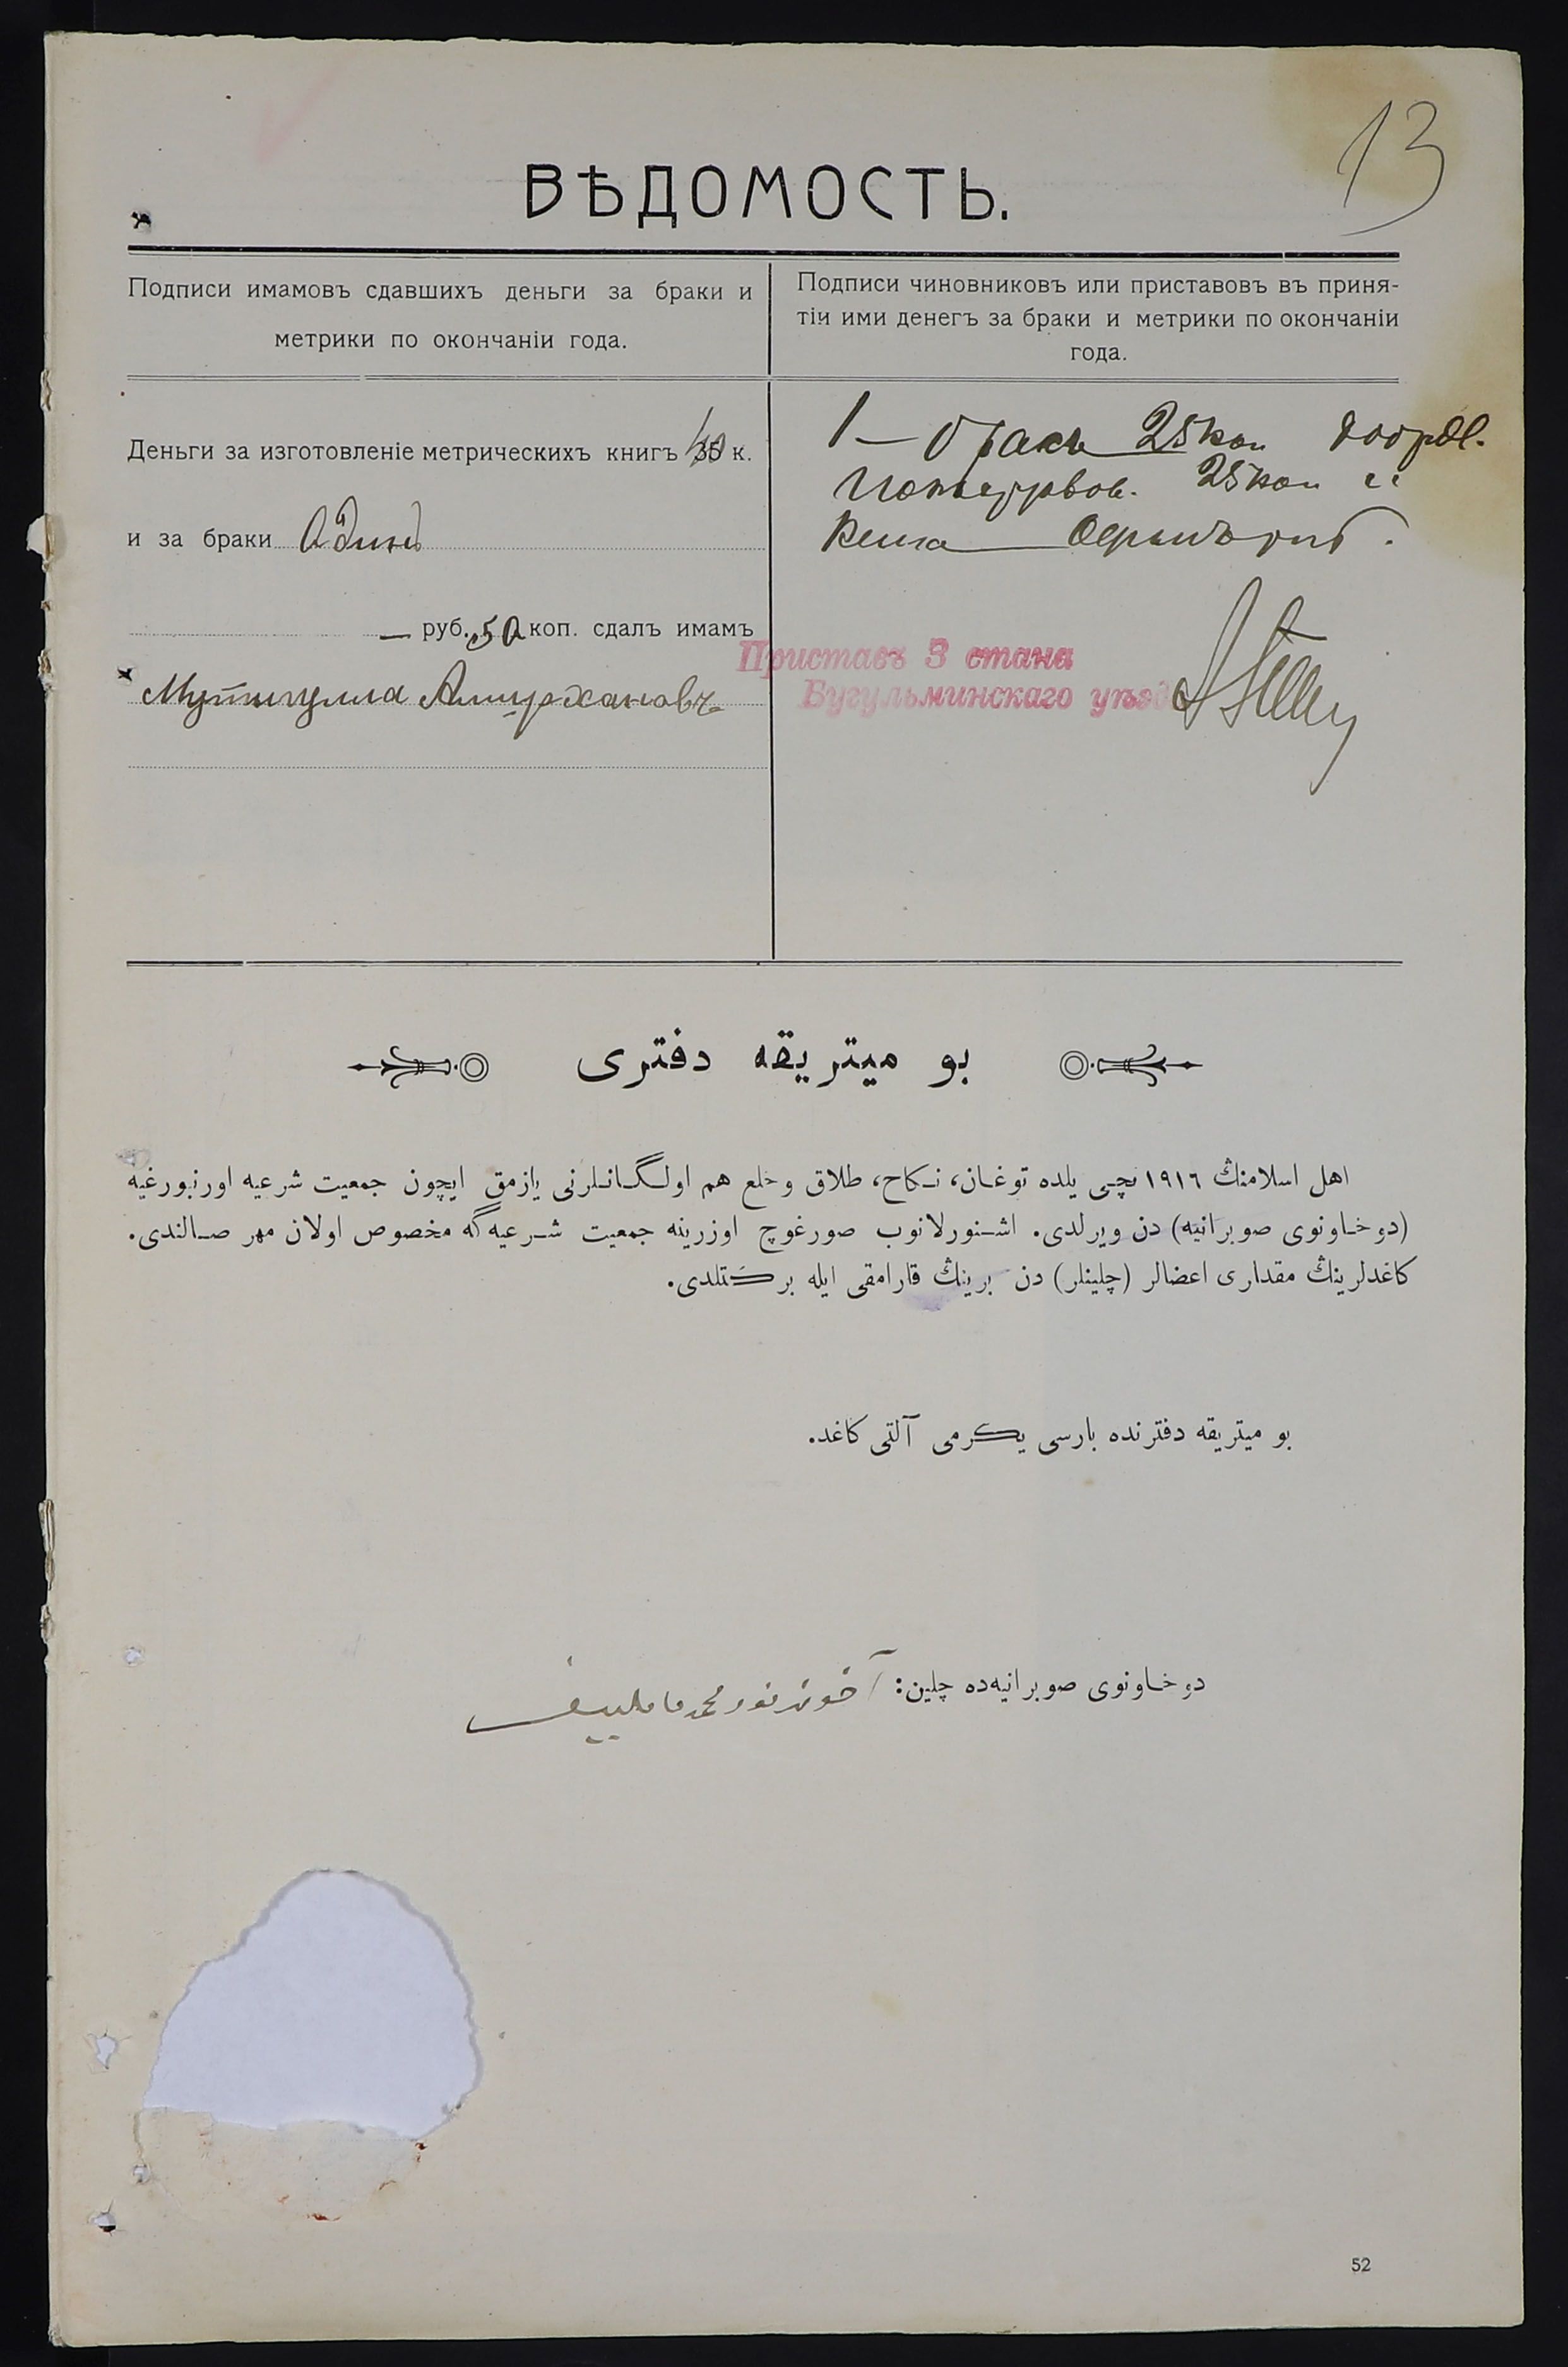 13
ВѢДОМОСТЬ.
Подписи имамовъ сдавшихъ деньги за браки и
метрики по окончаніи года.
Подписи чиновниковъ или приставовъ въ приня-
тіи ими денегъ за браки и метрики по окончаніи
года.
Деньги за изготовленіе метрическихъ книгъ 40 к.
и за браки Адинъ
— руб. 50 коп. сдалъ имамъ
Мутыгулла Амирхановъ
1 — бракъ 25 коп
25 коп "
Приставъ 3 стана
Бугульминскаго уѣзда
بو میتریقه دفتری
اهل اسلامنڭ ١٩١٦ نچی یلده توغان، نکاح، طلاق وخلع هم اولگانلرنی یازمق ایچون جمعیت شرعیه اورنبورغیه
(دوخاونوی صوبرانیه) دن ویرلدی. اشنورلانوب صورغوچ اوزرینه جمعیت شرعیه‌گه مخصوص اولان مهر صالندی.
كاغدلرینڭ مقداری اعضالر (چلینلر) دن برینڭ قارامقی ایله بركتلدی.
بو میتریقه دفترنده بارسی یكرمی آلتی كاغد.
دوخاونوی صوبرانیه‌ده چلین: آخوند نورمحمد ماملییف
52